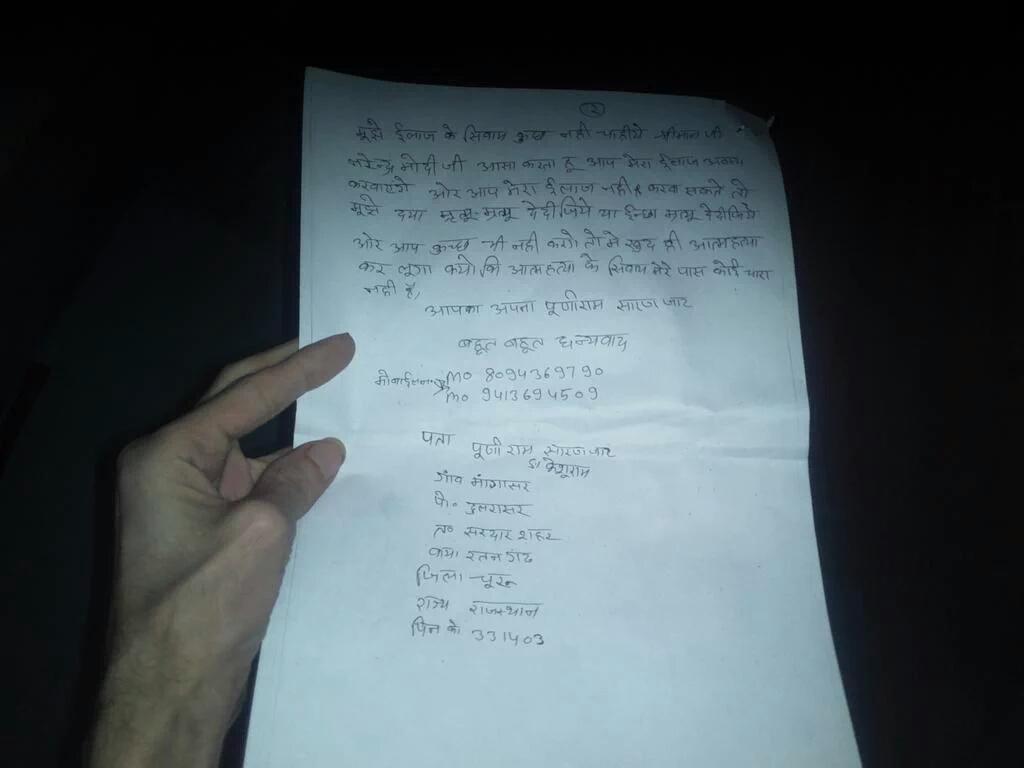 २
मुझे ईलाज के सिवाय कुछ नही चाहीये श्रीमान जी
नरेन्द्र मोदी जी आसा करता हू आप मेरा ईलाज
करवाएगे ओर आप मेरा ईलाज नही करवा सकते तो
मुझे दया मृत्यू मृत्यू देदीजिये या ईच्छा मृत्यू देदीजिये
ओर आप कुच्छ भी नही करो तो मे खुद ही आत्महत्या
कर लूगा क्यो कि आत्महत्या के सिवाय मेरे पास कोई चारा
नही है,
आपका अपना पूर्णाराम सारण जाट
बहूत बहूत धन्यवाद
मोबाईल न० Mo 8094369790
Mo 9413694509
पता पूर्णाराम सारण जाट
S/ केशूराम
गांव मांगासर
पो० दुलरासर
त० सरदार शहर
वाया रतनगढ
जिला चूरू
राज्य राजस्थान
पिन को 331403